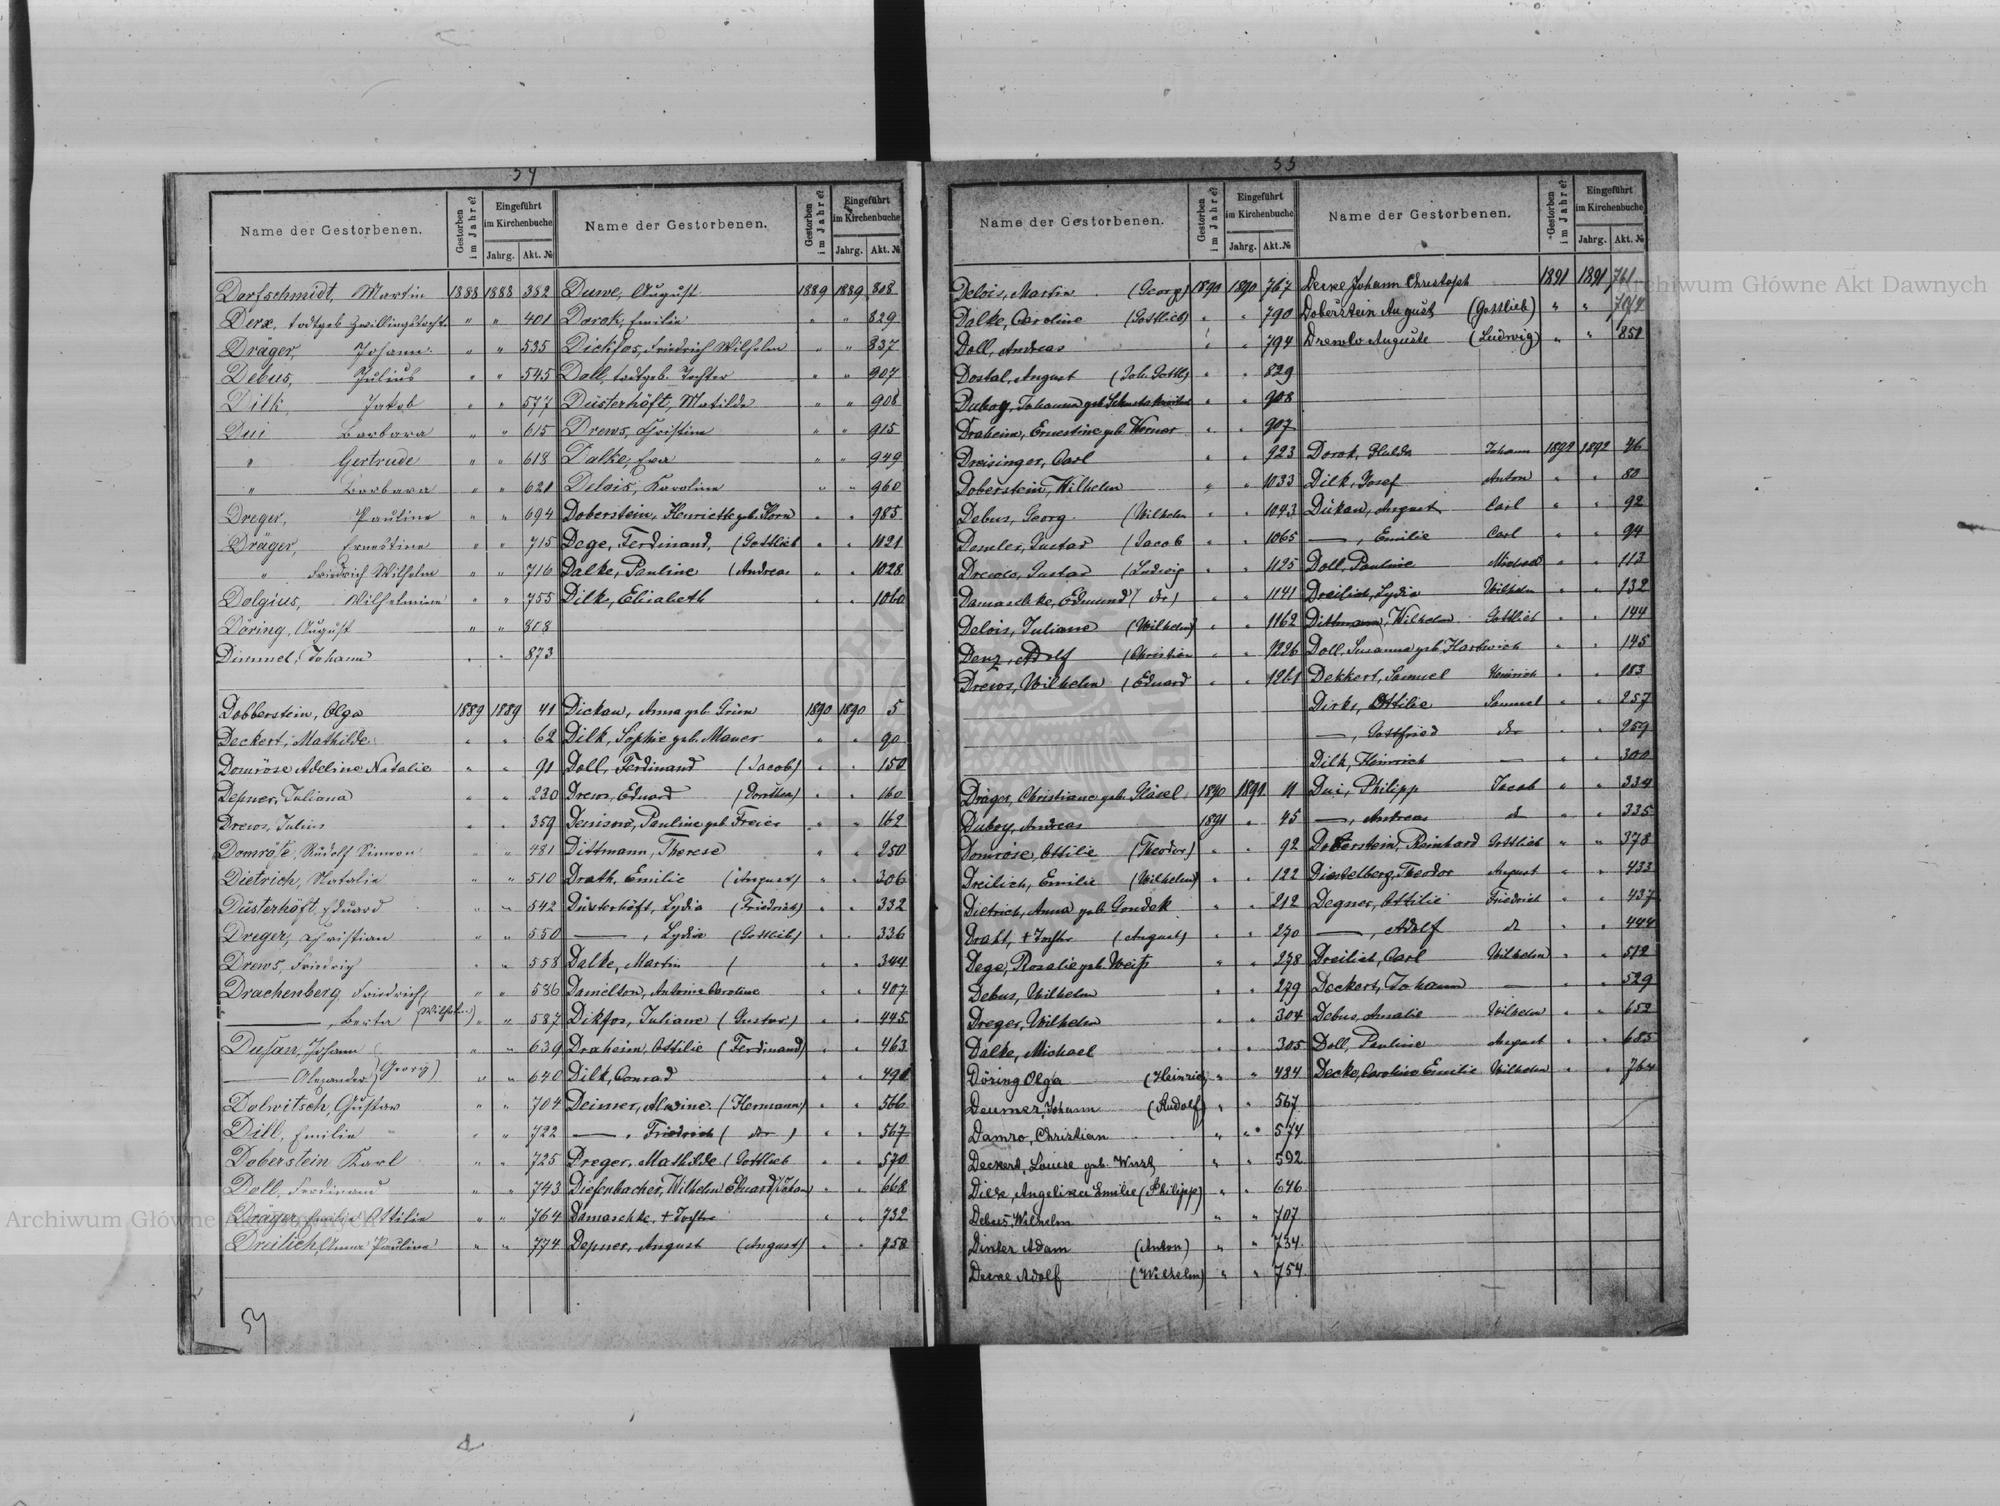 54
Name der Gestorbenen. Gestorben im Jahre? Eingeführt im Kirchenbuche Jahrg. Akt. №
Dorfschmidt, Martin 1888 1888 382
Derx, todtgeb Zwillingstocht. " " 401
Dräger, Johann " " 535
Debus, Julius " " 545
Dilk, Jakob " " 577
Dui Barbara " " 615
" Gertrude " " 618
" Barbara " " 621
Dreger, Pauline " " 694
Dräger, Ernestine " " 715
" Friedrich Wilhelm " " 716
Dolgius, Wilhelmine " " 755
Döring, August " " 808
Dimmel, Johann " " 873
Dobberstein, Olga 1889 1889 41
Deckert, Mathilde " " 62
Domröse Adeline Natalie " " 91
Depner, Juliana " " 230
Drews, Julius " " 359
Domröse, Rudolf Simon " " 481
Dietrich, Natalie " " 510
Düsterhöft, Eduard " " 542
Dreger, Christian " " 550
Drews, Friedrich " " 558
Drachenberg Friedrich " " 586
—, Berta (Wilhelm) " " 587
Dusan, Johann " " 639
— Alexander (Georg) " " 640
Dolwitsch, Gustav " " 704
Dill, Emilie " " 722
Doberstein Karl " " 725
Doll, Ferdinand " " 743
Dräger, Emilie Ottilie " " 764
Dreilich, Anna Pauline " " 774
54
Name der Gestorbenen. Gestorben im Jahre? Eingeführt im Kirchenbuche Jahrg. Akt. №
Duwe, August 1889 1889 808
Dorok, Emilie " " 829
Dickfos, Friedrich Wilhelm " " 837
Doll, todtgeb. Tochter " " 907
Düsterhöft, Matilde " " 908
Drews, Christine " " 915
Dalke, Eva " " 949
Delois, Karoline " " 960
Doberstein, Henriette geb. Horn " " 985
Dege, Ferdinand, (Gottlieb " " 1021
Dalke, Pauline (Andreas " " 1028
Dilk, Elisabeth " " 1060
Dickau, Anna geb. Grün 1890 1890 5
Dilk, Sophie geb. Mauer " " 90
Doll, Ferdinand (Jacob) " " 150
Drews, Eduard (Dorothea) " " 160
Denisow, Pauline geb. Freier " " 162
Dittmann, Therese " " 250
Drath, Emilie (August) " " 306
Düsterhöft, Lydia (Friedrich) " " 332
—, Lydia (Gottlieb) " " 336
Dalke, Martin ( " " 344
Damelton, Antonie Caroline " " 407
Dikfos, Juliane (Gustav) " " 445
Draheim, Ottilie (Ferdinand) " " 463
Dilk, Conrad " " 490
Deimer, Alwine (Hermann) " " 566
—, Friedrich (do) " " 567
Dreger, Mathilde (Gottlieb " " 570
Diefenbacher, Wilhelm Eduard (Johan) " " 668
Damaschke, + Tochter " " 732
Depner, August (August) " " 758
55
Name der Gestorbenen. Gestorben im Jahre? Eingeführt im Kirchenbuche Jahrg. Akt. №
Delois, Martin (Georg) 1890 1890 767
Dalke, Caroline (Gottlieb) " " 790
Doll, Andreas " " 794
Dostal, August (Joh. Gottl) " " 829
Duboy, Johanna geb. " " 908
Draheim, Ernestine geb. Kerner " " 907
Dreisinger, Carl " " 923
Doberstein, Wilhelm " " 1033
Debus, Georg (Wilhelm " " 1043
Demler, Gustav (Jacob " " 1065
Drews, Gustav (Ludwig " " 1125
Damaschke, Edmund (do) " " 1141
Delois, Juliane (Wilhelm) " " 1162
Denz, Adolf (Christian " " 1226
Drews, Wilhelm (Eduard " " 1261
Dräger, Christiane geb. Gläsel 1890 1891 11
Duboy, Andreas 1891 " 45
Domröse, Ottilie (Theodor) " " 92
Dreilich, Emilie (Wilhelm) " " 122
Dietrich, Anna geb. Gondek " " 212
Draht, + Tochter (August) " " 270
Dege, Rosalie geb. Weiß " " 278
Debus, Wilhelm " " 279
Dreger, Wilhelm " " 304
Dalke, Michael " " 305
Döring Olga (Heinrich " " 484
Deumer, Johann (Rudolf) " " 567
Damro, Christian " " 574
Deckert, Louise geb. Wurtz " " 592
Dierx, Angelika Emilie (Philipp) " " 676
Debus, Wilhelm " " 707
Dinter Adam (Anton) " " 734
Decke Adolf (Wilhelm) " " 754
Name der Gestorbenen. Gestorben im Jahre? Eingeführt im Kirchenbuche Jahrg. Akt. №
Decke Johann Christoph 1891 1891 761
Doberstein August (Gottlieb) " " 764
Drewlo Auguste (Ludwig) " " 851
Dorok, Hulda Johann 1892 1892 46
Dilk, Josef Anton " " 80
Dickau, August Carl " " 92
—, Emilie Carl " " 94
Doll, Pauline Michael " " 113
Dreilich, Lydia Wilhelm " " 132
Dittmann, Wilhelm Gottlieb " " 144
Doll, Susanna geb. Hartwich " " 145
Dekkert, Samuel Heinrich " " 183
Dirks, Ottilie Samuel " " 257
—, Gottfried do " " 259
Dilk, Heinrich — " " 300
Dui, Philipp Jacob " " 334
—, Andreas do " " 335
Doberstein, Reinhard Gottlieb " " 378
Diestelberg, Theodor August " " 433
Degner, Ottilie Friedrich " " 437
—, Adolf do " " 444
Dreilich, Carl Wilhelm " " 512
Deckert, Johann — " " 529
Debus, Amalie Wilhelm " " 652
Doll, Pauline August " " 685
Decke, Caroline Emilie Wilhelm " " 764
Archiwum Główne Akt Dawnych
Archiwum Główne Akt Dawnych